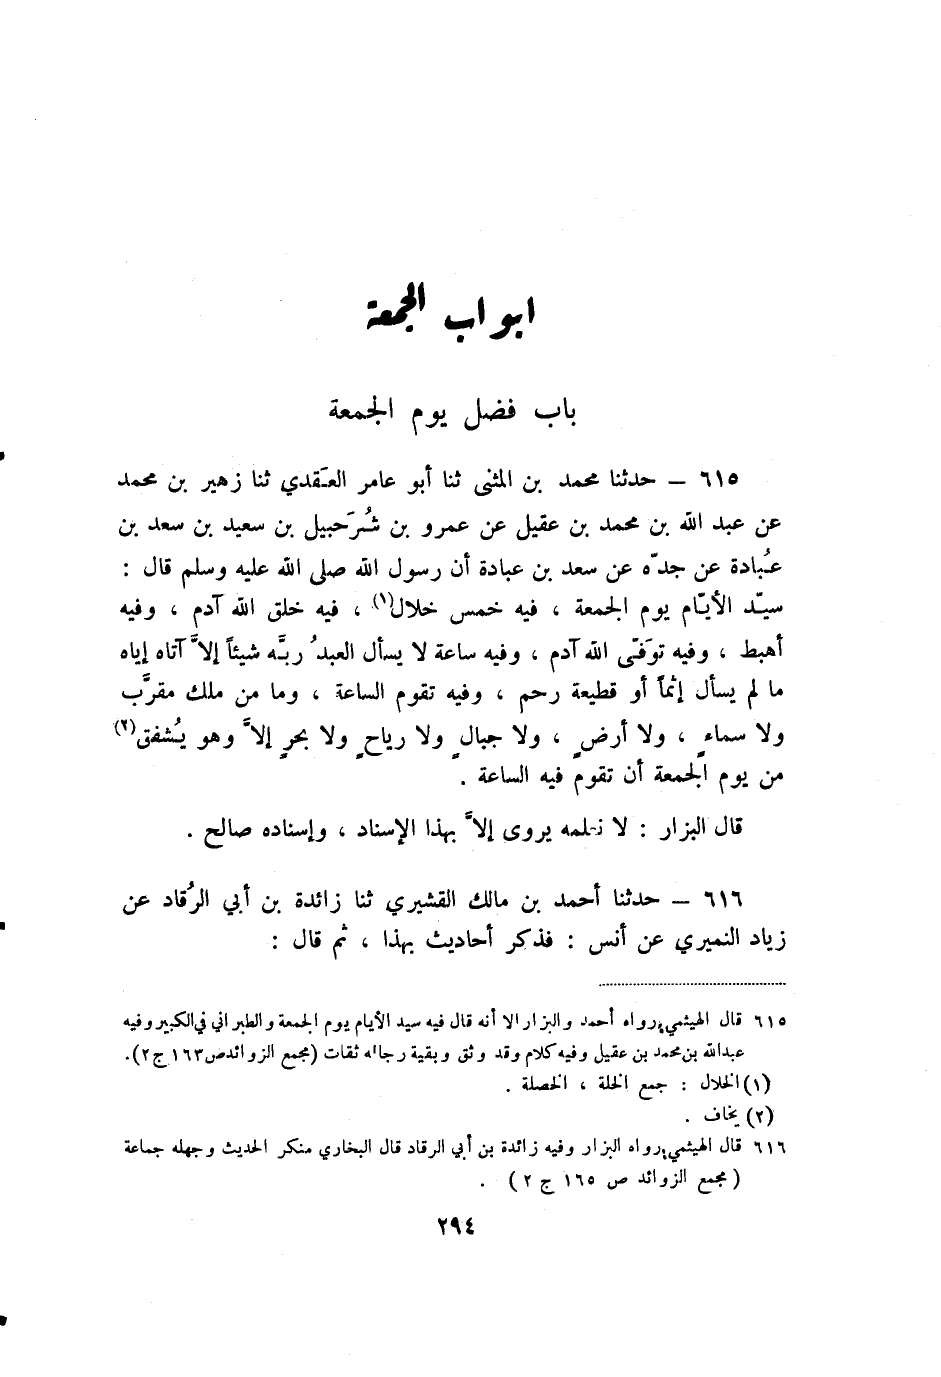 ابواب الجمعة
باب فضل يوم الجمعة
٦١٥ – حدثنا محمد بن المثنى ثنا أبو عامر العَقدي ثنا زهير بن محمد
عن عبد الله بن محمد بن عقيل عن عمرو بن شُرَحبيل بن سعيد بن سعد بن
عُبادة عن جدّه عن سعد بن عبادة أن رسول الله صلى الله عليه وسلم قال :
سيّد الأيّام يوم الجمعة ، فيه خمس خلال(١) ، فيه خلق الله آدم ، وفيه
أهبط ، وفيه توَفّى الله آدم ، وفيه ساعة لا يسأل العبدُ ربَّه شيئاً إلاَّ آتاه إياه
ما لم يسأل إثماً أو قطيعة رحم ، وفيه تقوم الساعة ، وما من ملك مقرَّب
ولا سماءٍ ، ولا أرضٍ ، ولا جبالٍ ولا رياحٍ ولا بحرٍ إلاَّ وهو يُشفق(٢)
من يوم الجمعة أن تقوم فيه الساعة .
قال البزار : لا نعلمه يروى إلاَّ بهذا الإسناد ، وإسناده صالح .
٦١٦ – حدثنا أحمد بن مالك القشيري ثنا زائدة بن أبي الرُقاد عن
زياد النميري عن أنس : فذكر أحاديث بهذا ، ثم قال :
٦١٥ قال الهيثمي: رواه أحمد والبزار الا أنه قال فيه سيد الأيام يوم الجمعة والطبراني في الكبير وفيه
عبدالله بن محمد بن عقيل وفيه كلام وقد وثق وبقية رجاله ثقات (مجمع الزوائد ص ١٦٣ ج ٢).
(١) الخلال : جمع الخلة ، الخصلة .
(٢) يخاف .
٦١٦ قال الهيثمي: رواه البزار وفيه زائدة بن أبي الرقاد قال البخاري منكر الحديث وجهله جماعة
( مجمع الزوائد ص ١٦٥ ج ٢ ) .
٢٩٤